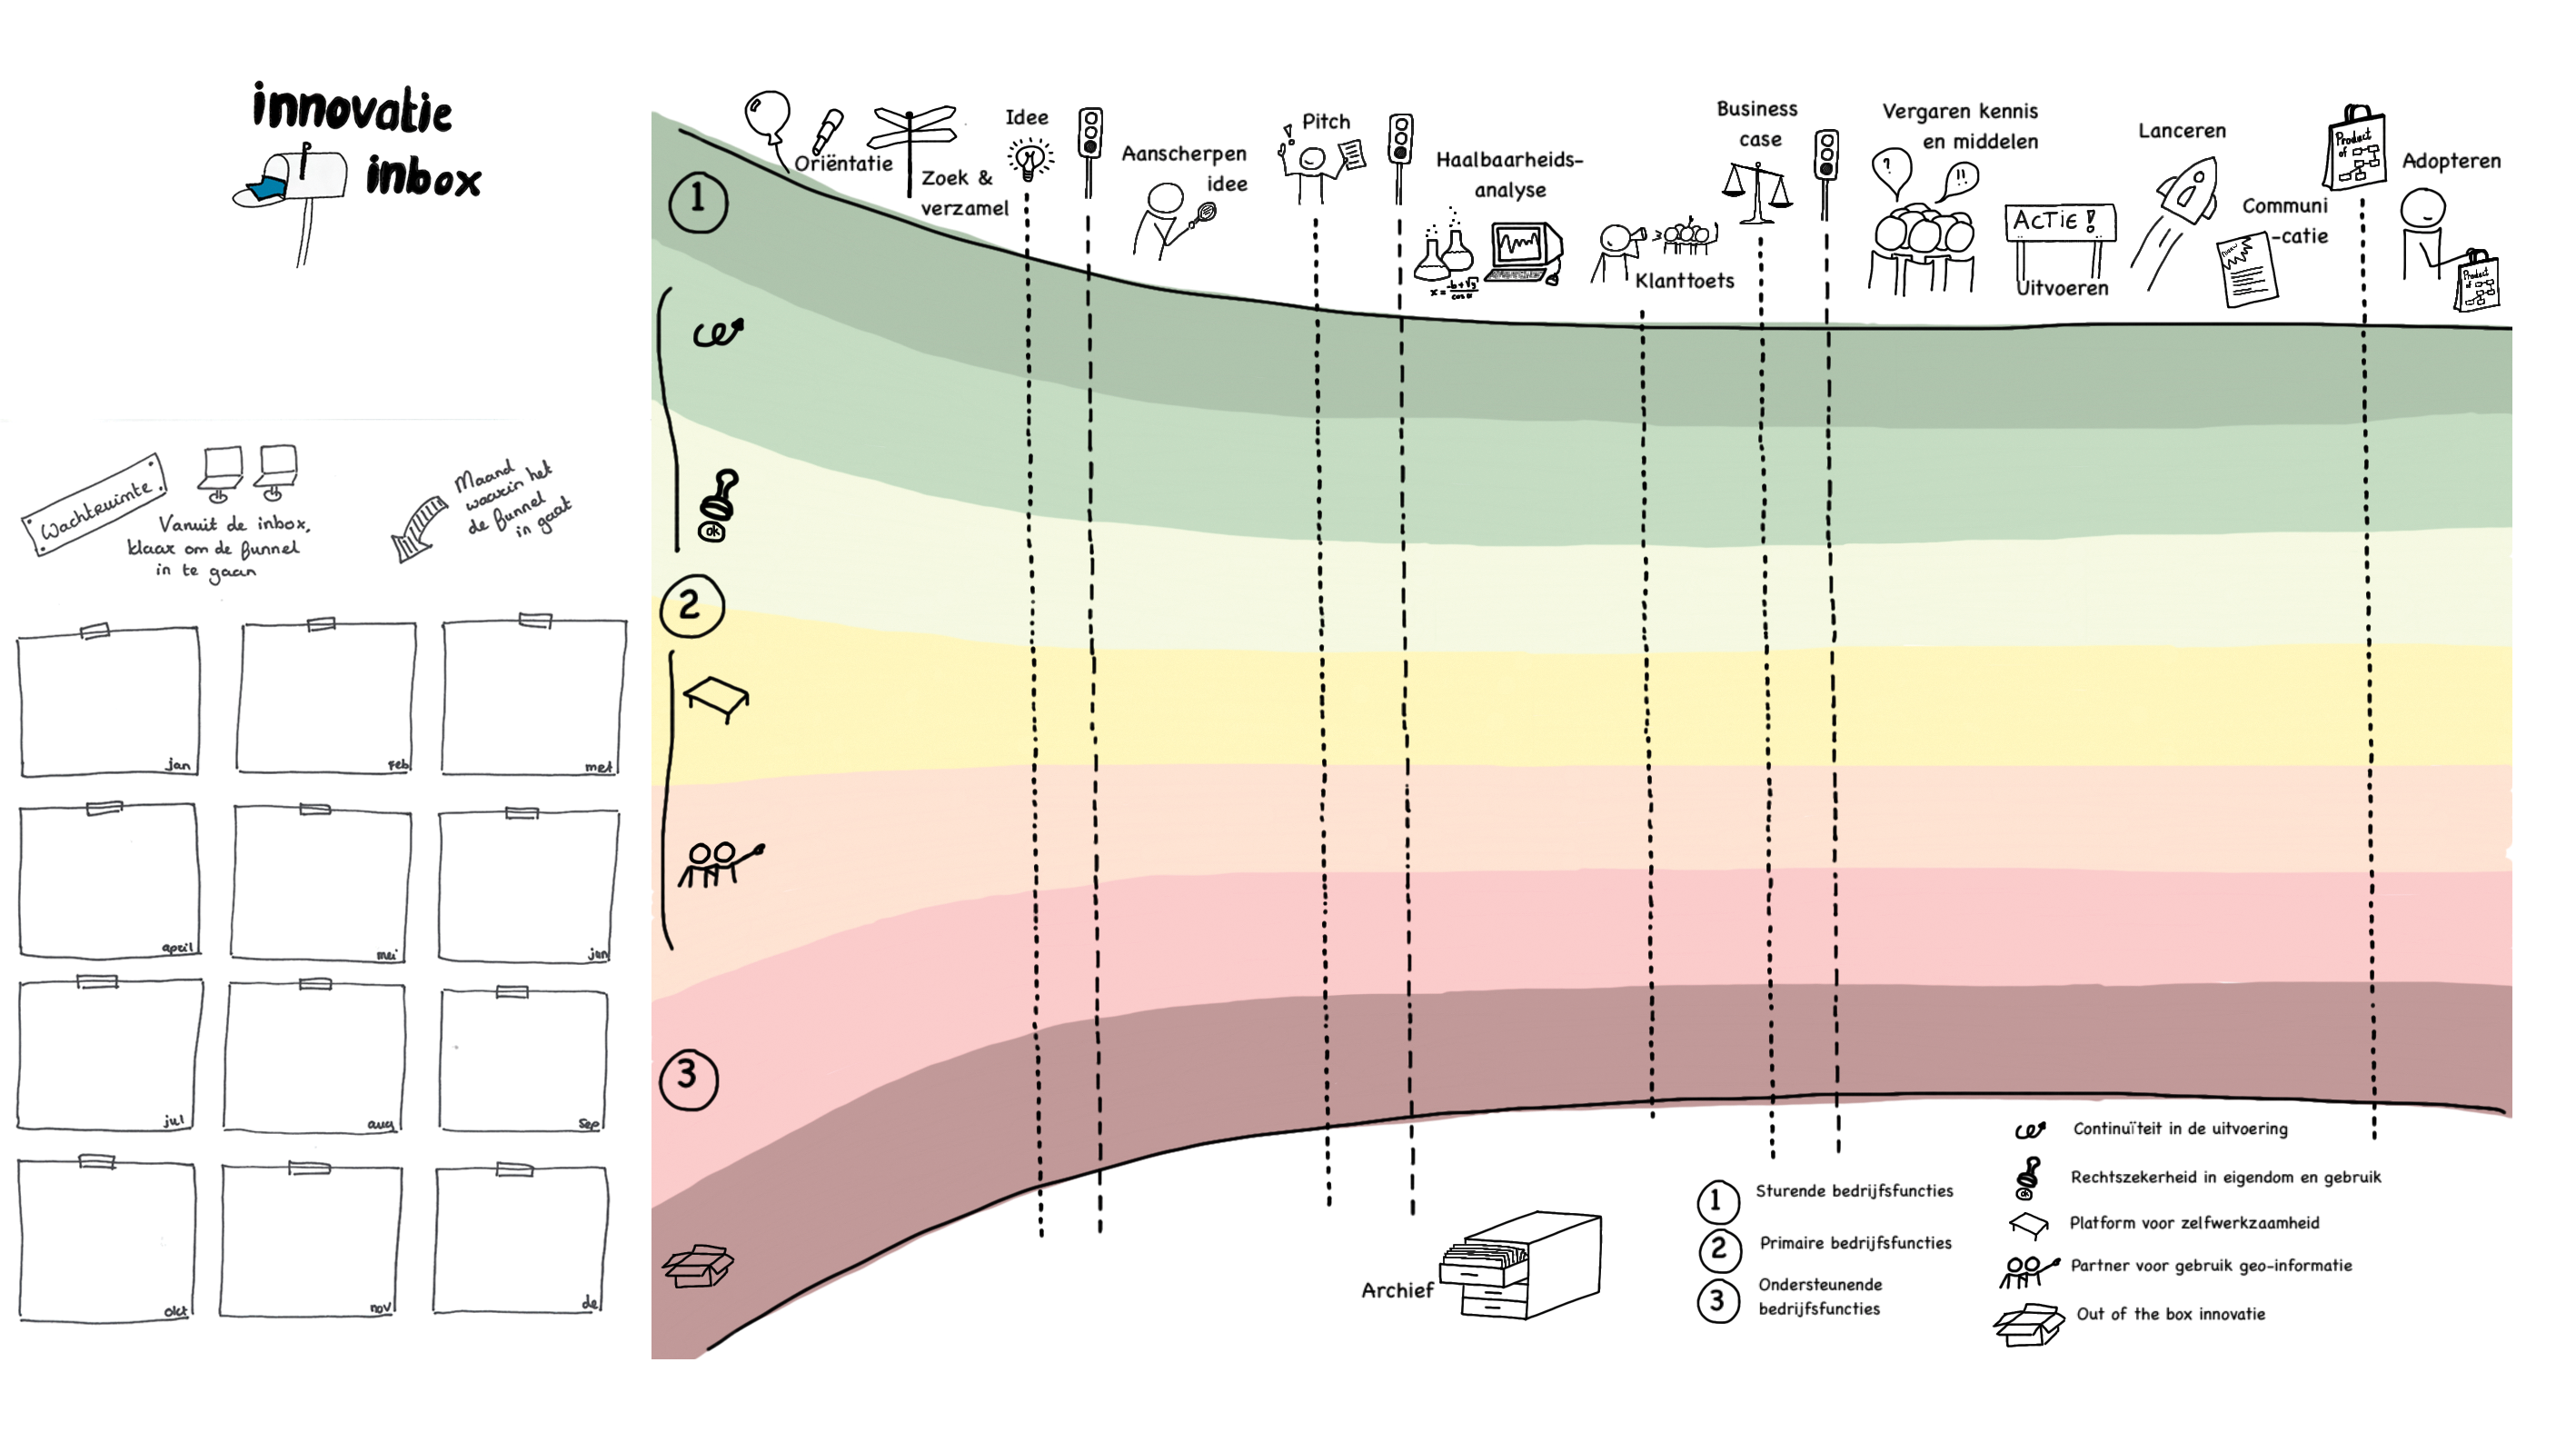 innovatie
inbox
Wachtruimte
Vanuit de inbox,
klaar om de funnel
in te gaan
Maand
waarin het
de funnel
in gaat
jan
Feb
april
mei
jun
jul
aug
Sep
okt
nov
de
Oriëntatie
Zoek &
verzamel
Idee
Aanscherpen
idee
Pitch
Haalbaarheids-
analyse
Klanttoets
Business
case
Vergaren kennis
en middelen
?
!!
ACTIE !
Uitvoeren
Lanceren
Communi
-catie
Product
of
Adopteren
Product
of
1
2
3
ok
Archief
1 Sturende bedrijfsfuncties
2 Primaire bedrijfsfuncties
3 Ondersteunende
bedrijfsfuncties
Continuïteit in de uitvoering
Rechtszekerheid in eigendom en gebruik
Platform voor zelfwerkzaamheid
Partner voor gebruik geo-informatie
Out of the box innovatie